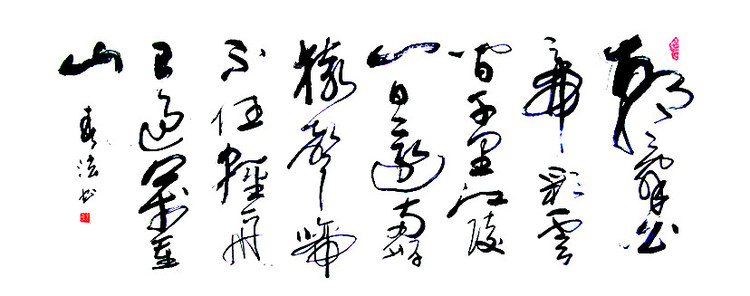 朝辞白
帝彩雲
间千里江陵
一日還两岸
猿聲啼
不住輕舟
已過萬重
山
春法书